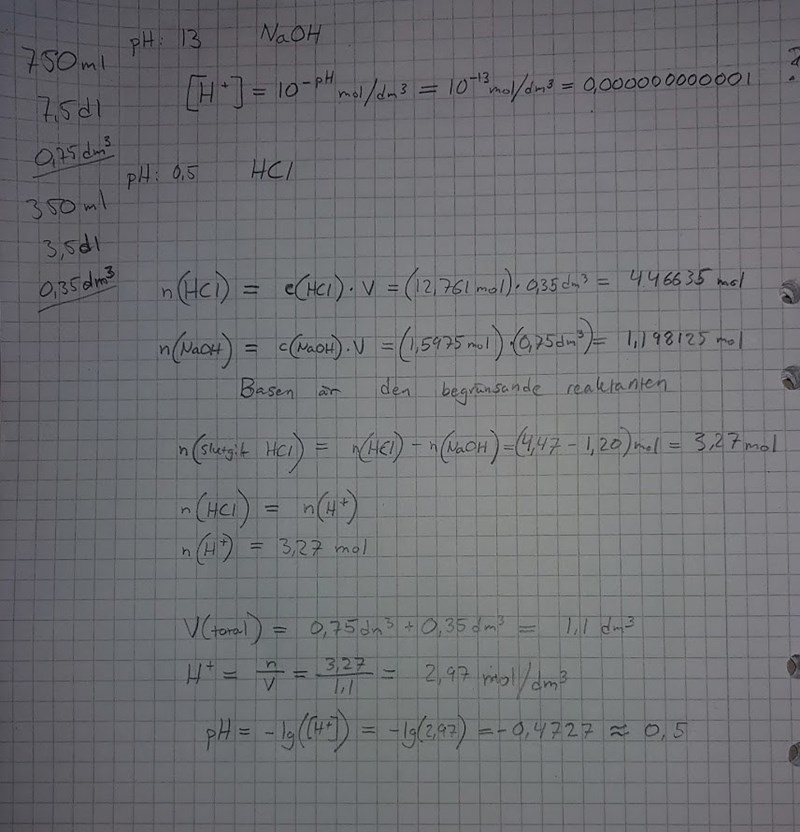 pH: 13 NaOH
750ml
7,5dl
0,75dm³
[H⁺] = 10⁻ᵖᴴ mol/dm³ = 10⁻¹³ mol/dm³ = 0,0000000000001
pH: 0,5 HCl
350ml
3,5dl
0,35dm³
n(HCl) = c(HCl)·V = (12,761 mol)·0,35dm³ = 4,46635 mol
n(NaOH) = c(NaOH)·V = (1,5975mol)·(0,75dm³) = 1,198125 mol
Basen är den begränsande reaktanten
n(slutgilt HCl) = n(HCl) - n(NaOH) = (4,47 - 1,20)mol = 3,27mol
n(HCl) = n(H⁺)
n(H⁺) = 3,27 mol
V(total) = 0,75dm³ + 0,35dm³ = 1,1 dm³
H⁺ = n/V = 3,27/1,1 = 2,97 mol/dm³
pH = -lg([H⁺]) = -lg(2,97) = -0,4727 ≈ 0,5